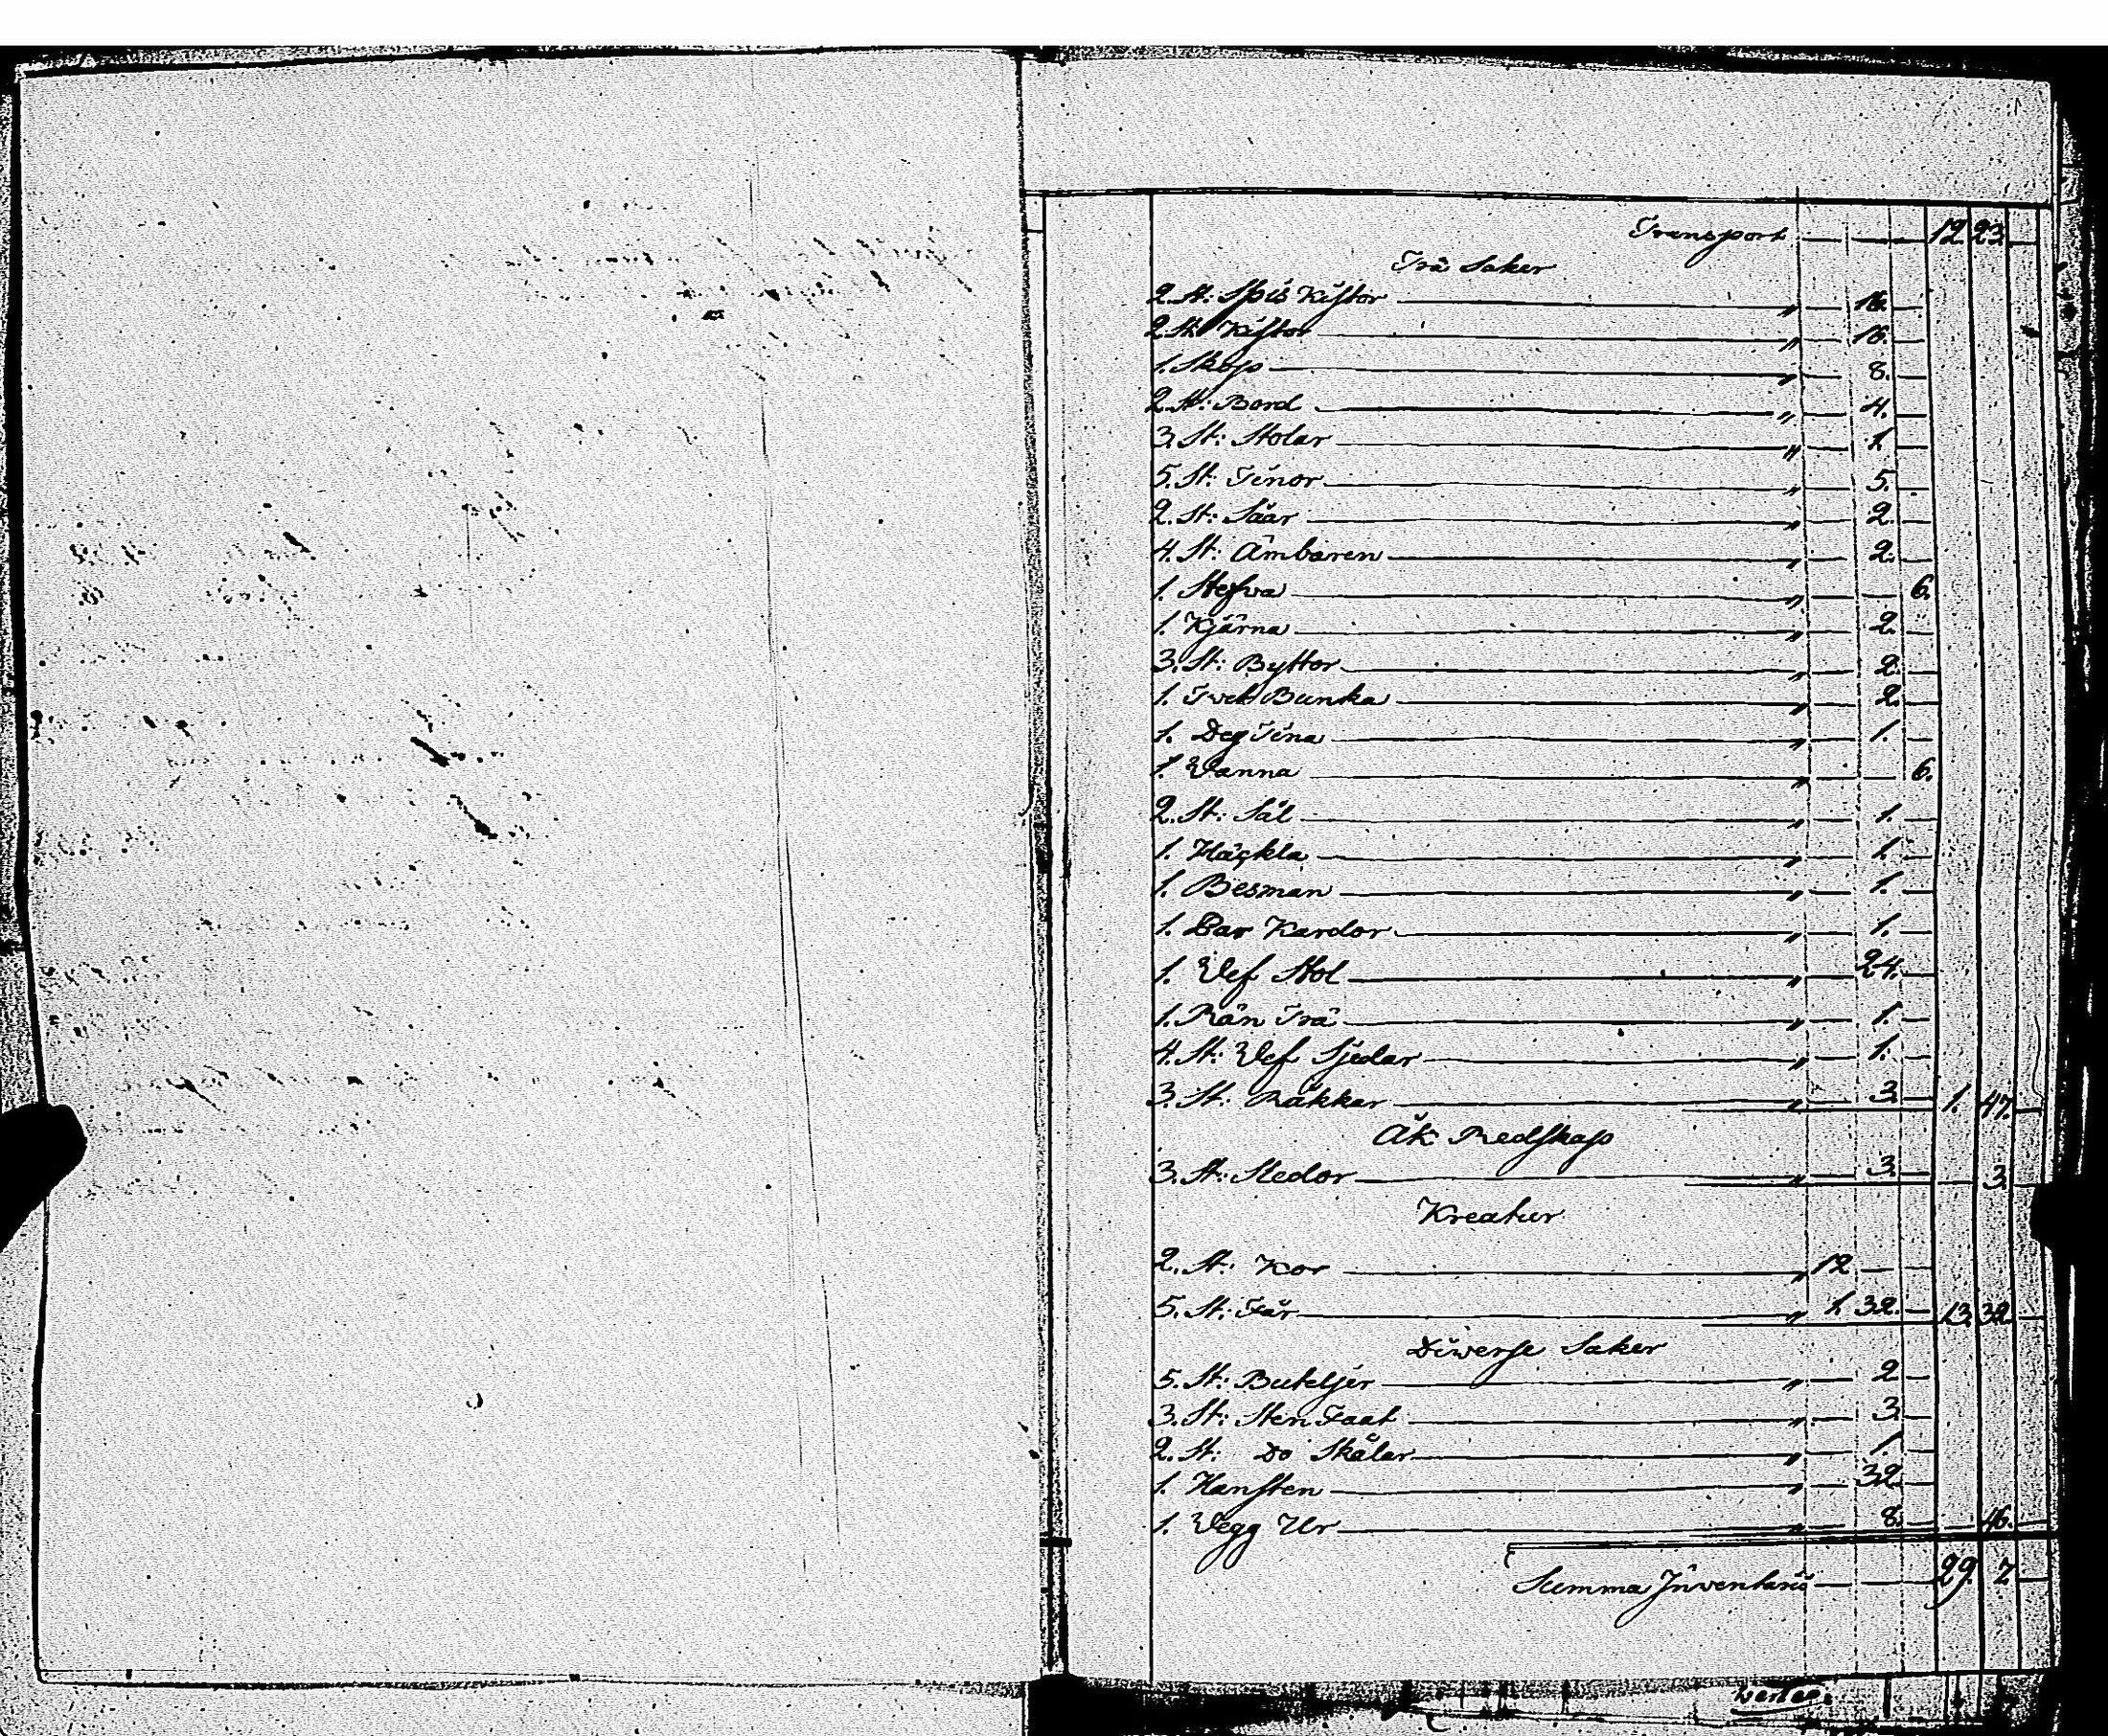 Transport — — 12 23 —
Trä Saker
2. St: Spis Kistor — " — 16. —
2. St: Kistor — " — 16. —
1. Skåp — " — 8. —
2. St: Bord — " — 4. —
3. St: Stolar — " — 1 —
5. St: Tinor — " — 5. —
2. St: Såar — " — 2. —
4. St: Ämbaren — " — 2. —
1. Stefva — " — — 6.
1. Kjärna — " — 2. —
3. St: Byttor — " — 2. —
1. Tvet Bunka — " — 2. —
1. Deg Tina — " — 1. —
1. Vanna — " — — 6.
2. St: Sål — " — 1. —
1. Häckla — " — 1. —
1. Besman — " — 1. —
1. Par Kardor — " — 1. —
1. Vef Stol — " — 24. —
1. Rän Trä — " — 1. —
4. St: Vef Sjedar — " — 1. —
3. St: Räkkar — " — 3. — 1. 47. —
Åk Redskap
3. St: Sledor — " — 3. — 3. —
Kreatur
2. St: Kor — " 12 — —
5. St: Får — " 1. 32. — 13. 32. —
Diverse Saker
5. St: Buteljer — " — 2 —
3. St: Sten Faat — " — 3. —
2. St: Do Skålar — " — 1. —
1. Hansten — " — 32. —
1. Vegg Ur — " — 8. — 46. —
Summa Inventarii — — 29. 7 —